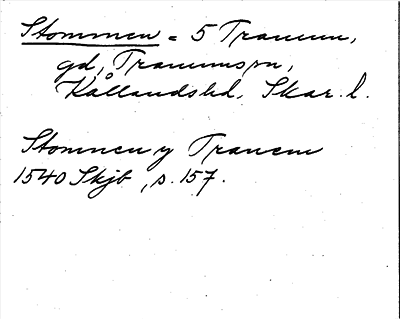 Stommen = 5 Tranum,
gd, Tranums sn,
Kållands hd, Skar. l.
Stommen y Tranem
1540 Skjb, s. 157.